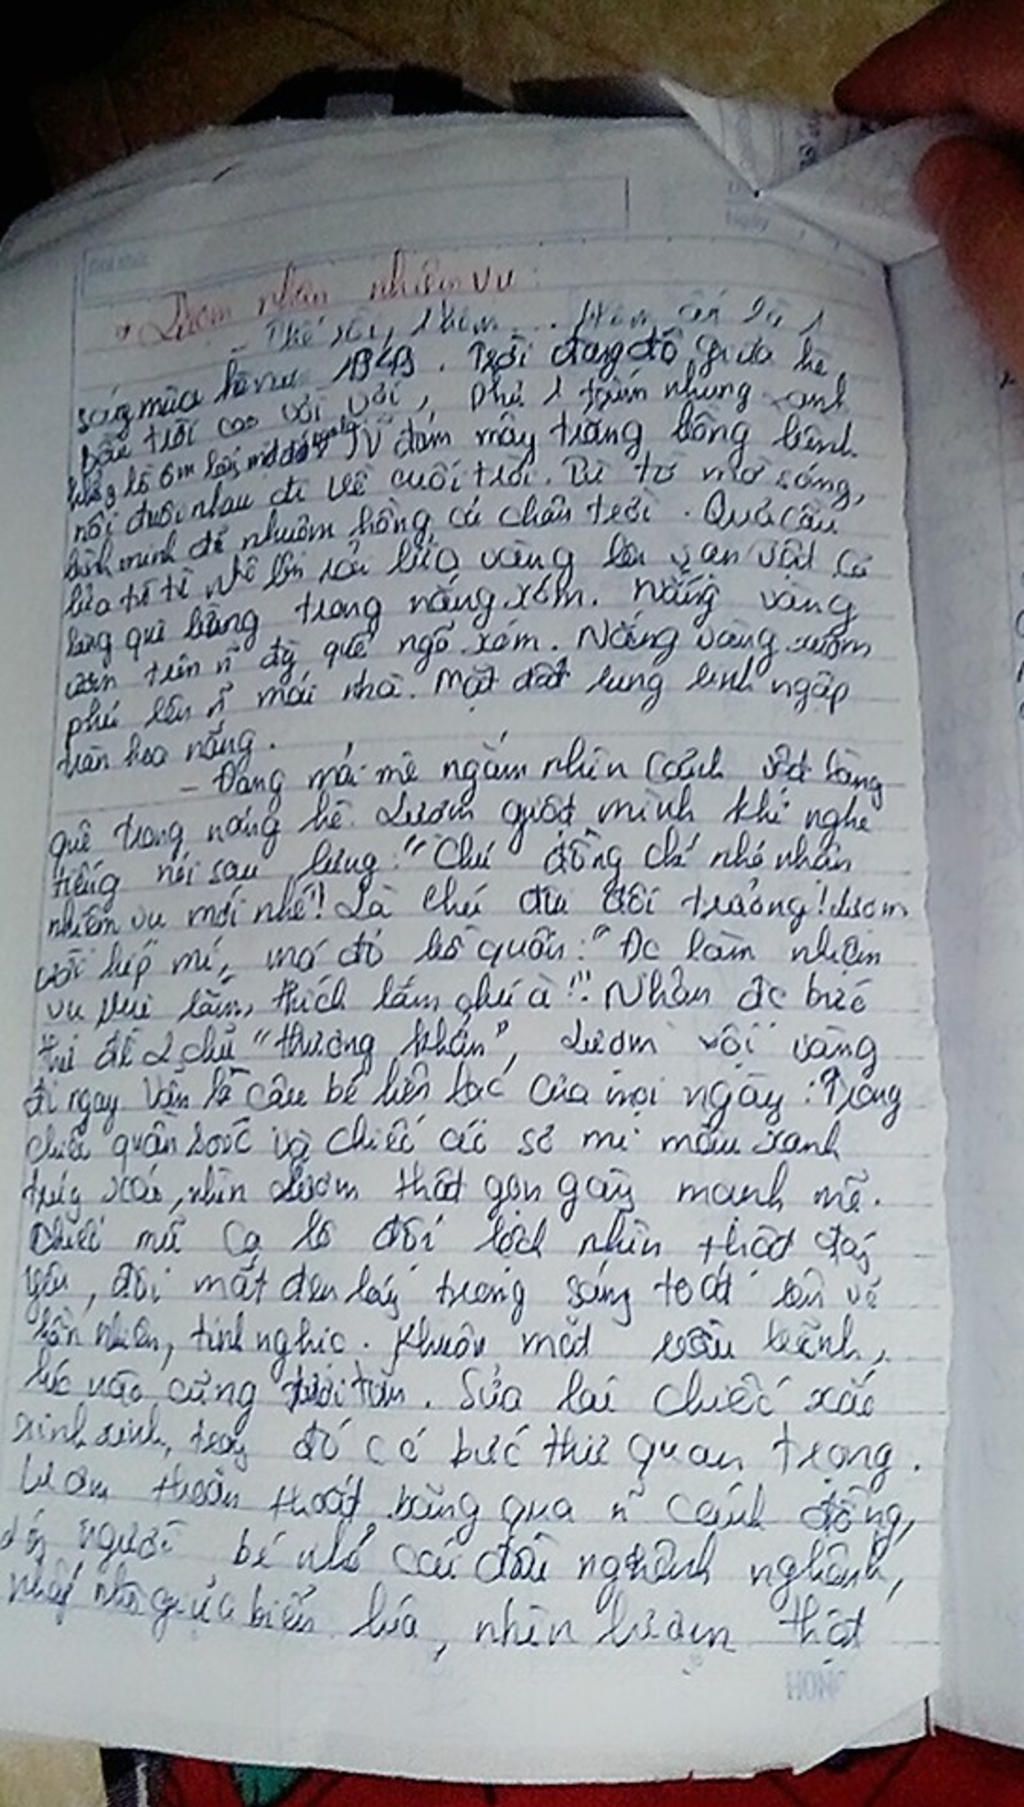 * Lượm nhận nhiệm vụ:
- Thế rồi, 1 hôm... Hôm ấy là 1
sáng mùa hè năm 1949. Trời đang độ giữa hè,
bầu trời cao vời vợi, như 1 tấm nhung xanh
khổng lồ ôm lấy mặt đất. N~ đám mây trắng bồng bềnh
nối đuôi nhau đi về cuối trời. Từ tờ mờ sáng,
bình minh đã nhuộm hồng cả chân trời. Quả cầu
lửa từ từ nhô lên rải lửa vàng lên vạn vật. Cả
làng quê bừng trong nắng sớm. Nắng vàng
trên n~ quê ngõ xóm. Nắng vàng ươm
phủ lên n~ mái nhà. Mặt đất lung linh ngập
tràn hoa nắng.
- Đang mải mê ngắm nhìn cảnh vật làng
quê trong nắng hè. Lượm giật mình khi nghe
tiếng nói sau lưng: "Chú đồng chí nhỏ nhận
nhiệm vụ mới nhé! Là chú đội trưởng! Lượm
cười híp mí, má đỏ bồ quân: "Đc làm nhiệm
vụ vui lắm, thích lắm chú à!". Nhận đc bức
thư đề 2 chữ "thượng khẩn", Lượm vội vàng
đi ngay. Vẫn là cậu bé liên lạc của mọi ngày: Trong
chiếc quần soóc và chiếc áo sơ mi màu xanh
nhìn Lượm thật gọn gàng mạnh mẽ.
Chiếc mũ ca lô đội lệch nhìn thật đáng
yêu, đôi mắt đen láy trong sáng toát lên vẻ
hồn nhiên, tinh nghịc. Khuôn mặt bầu bĩnh,
lúc nào cũng tươi tắn. Sửa lại chiếc xắc
xinh xinh, trong đó có bức thư quan trọng.
Lượm thoăn thoắt băng qua n~ cánh đồng,
người bé nhỏ cái đầu nghênh nghênh,
nhấp nhô giữa biển lúa, nhìn Lượm thật
HONG